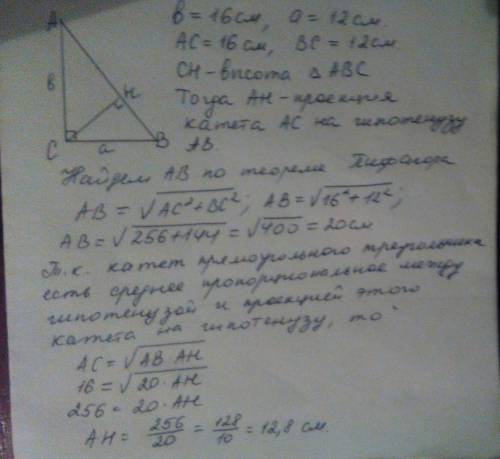 A
в = 16 см, а = 12 см.
AC = 16 см, BC = 12 см.
CH - высота Δ ABC
в
H
Тогда AH - проекция
катета AC на гипотенузу
AB.
C
a
B
Найдем AB по теореме Пифагора
AB = √AC² + BC²; AB = √16² + 12²;
AB = √256 + 144 = √400 = 20 см
Т.к. катет прямоугольного треугольника
есть среднее пропорциональное между
гипотенузой и проекцией этого
катета на гипотенузу, то
AC = √AB · AH
16 = √20 · AH
256 = 20 · AH
AH = 256/20 = 128/10 = 12,8 см.